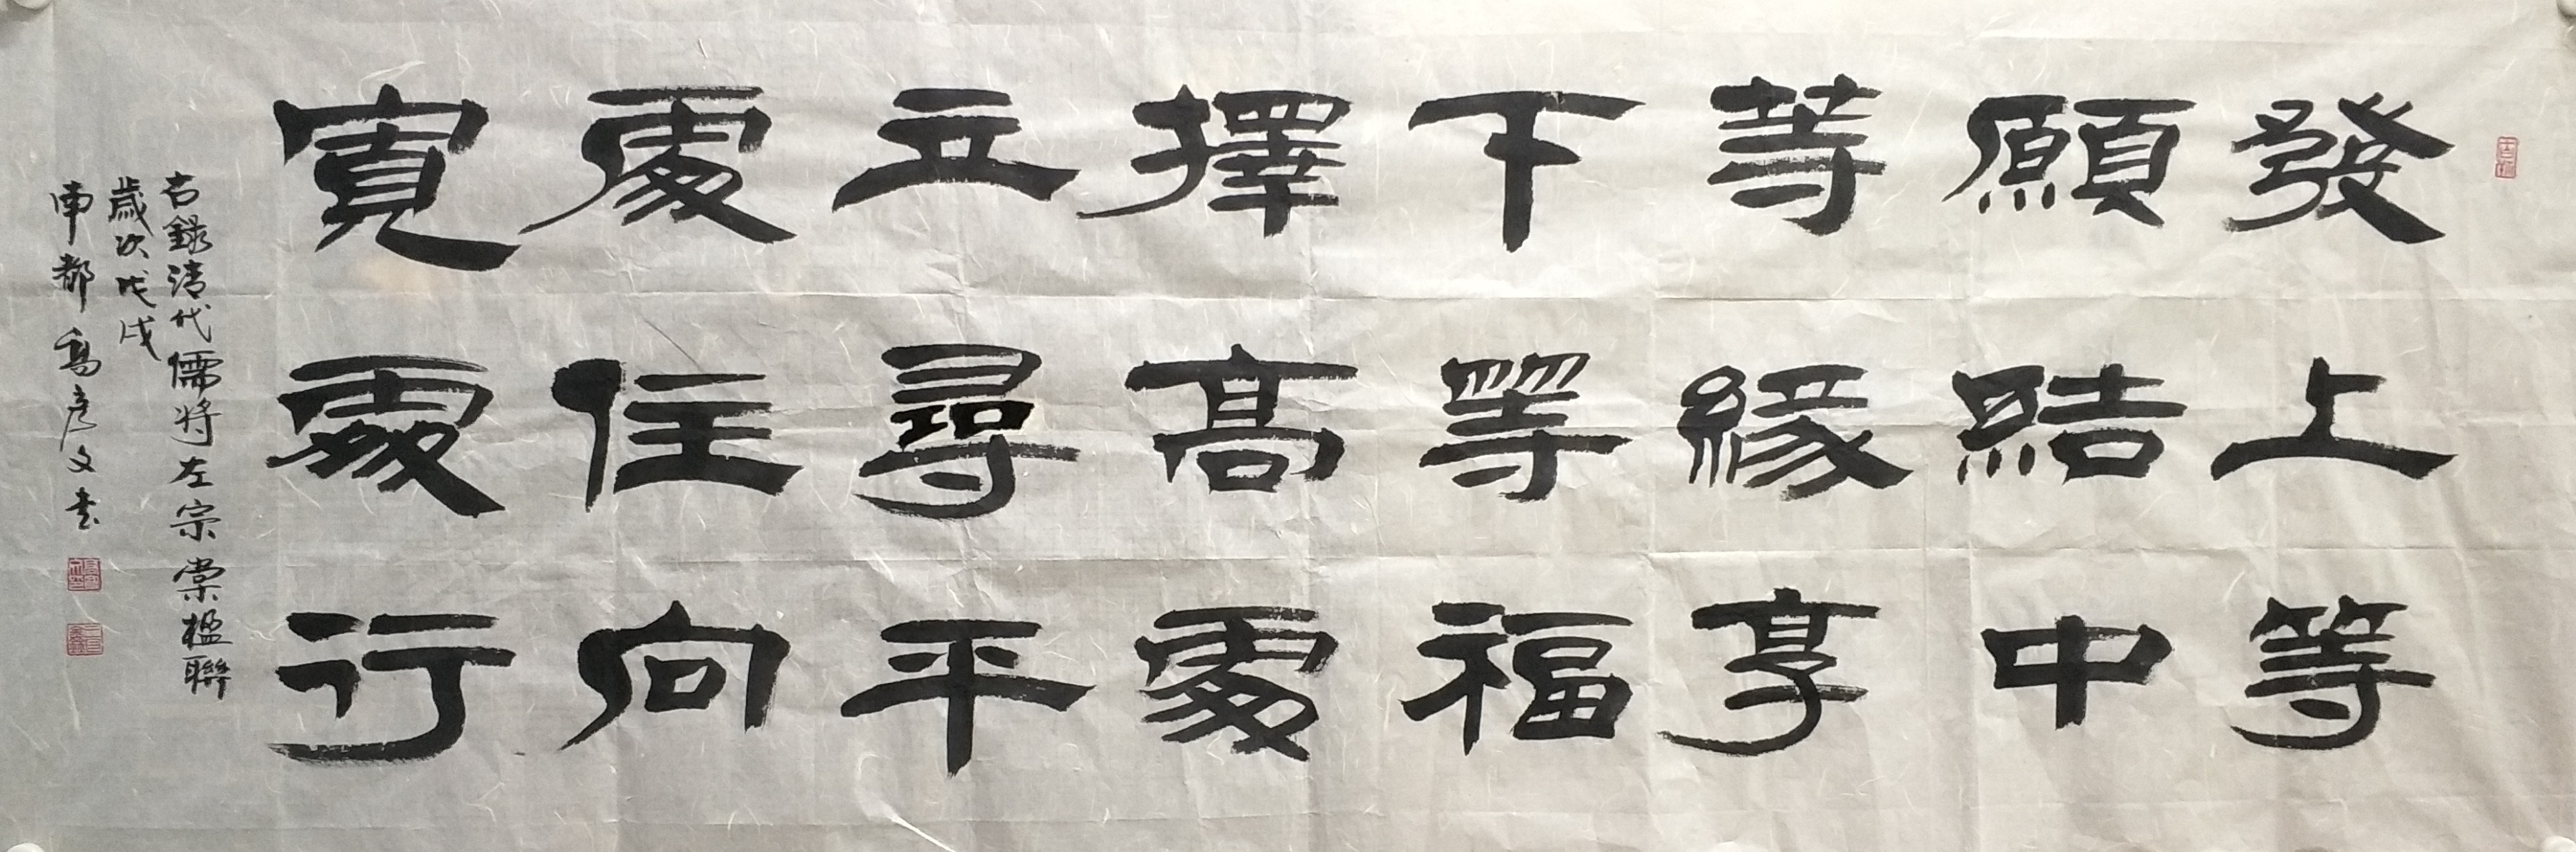 發上等
願結中
等緣享
下等福
擇高處
立尋平
處住向
寬處行
右錄清代儒將左宗棠楹聯
歲次戊戌
南都 彥文書